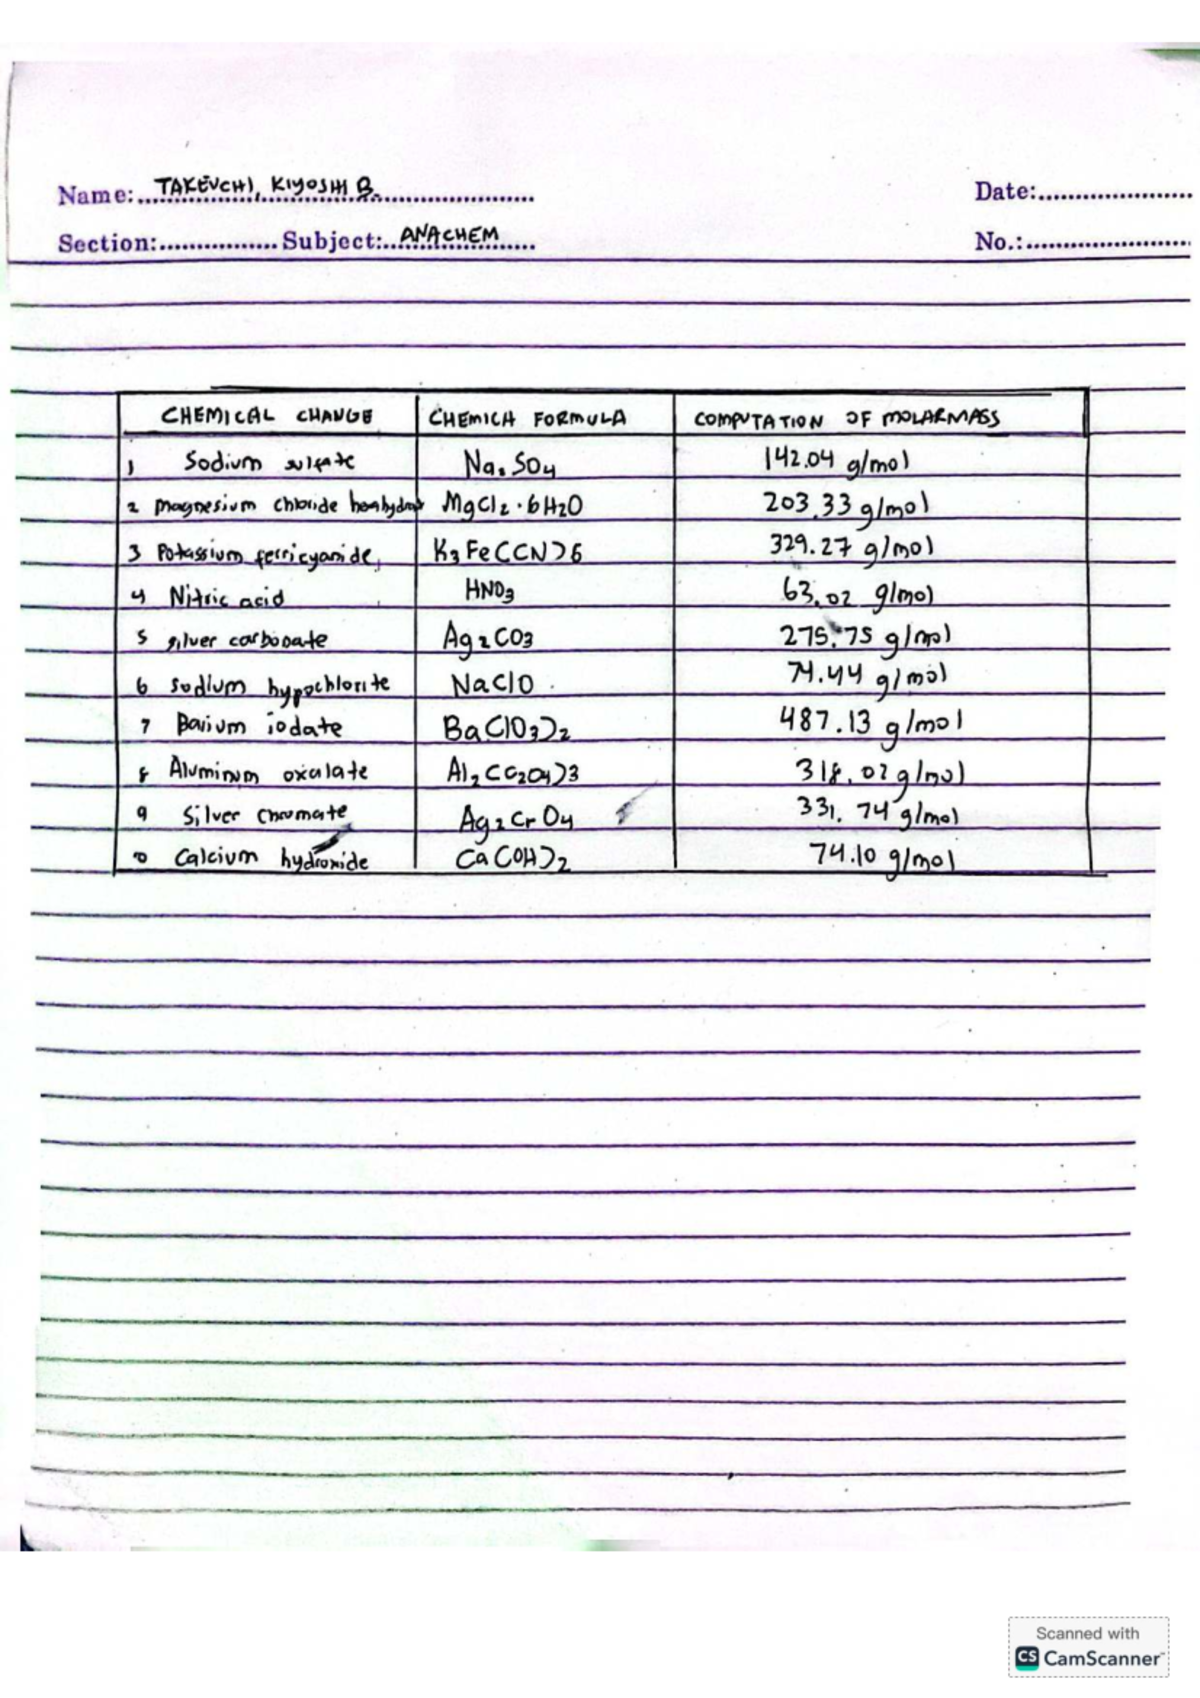 Name: TAKEUCHI, KIYOSHI B. Date:
Section: Subject: ANACHEM No.:
CHEMICAL CHANGE CHEMICH FORMULA COMPUTATION OF MOLARMASS
1 Sodium sulfate Na2SO4 142.04 g/mol
2 Magnesium chloride hexahydrat MgCl2·6H2O 203.33 g/mol
3 Potassium ferricyanide, K3Fe(CN)6 329.27 g/mol
4 Nitric acid HNO3 63.02 g/mol
5 silver carbonate Ag2CO3 275.75 g/mol
6 Sodium hypochlorite NaClO 74.44 g/mol
7 Barium iodate Ba(IO3)2 487.13 g/mol
8 Aluminum oxalate Al2(C2O4)3 318.02 g/mol
9 Silver chromate Ag2CrO4 331.74 g/mol
10 Calcium hydroxide Ca(OH)2 74.10 g/mol
Scanned with
CS CamScanner